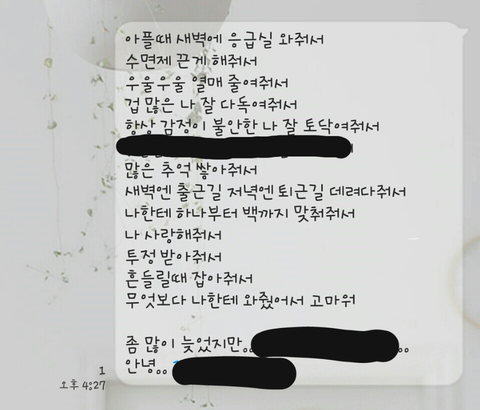 아플때 새벽에 응급실 와줘서
수면제 끈게 해줘서
우울우울 열매 줄여줘서
겁 많은 나 잘 다독여줘서
항상 감정이 불안한 나 잘 토닥여줘서
많은 추억 쌓아줘서
새벽엔 출근길 저녁엔 퇴근길 데려다줘서
나한테 하나부터 백까지 맞춰줘서
나 사랑해줘서
투정 받아줘서
흔들릴때 잡아줘서
무엇보다 나한테 와줬어서 고마워
좀 많이 늦었지만,,
안녕,,
1
오후 4:27